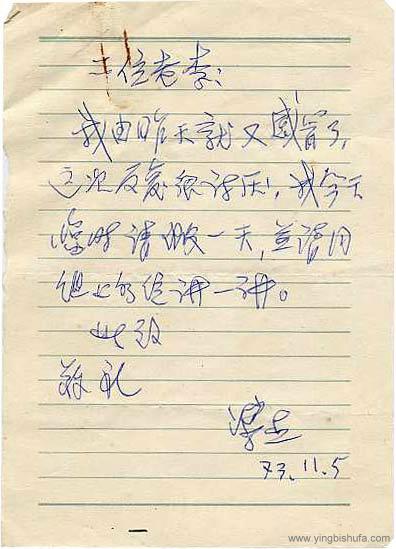 二位老李：
我由昨天就又感冒了，
这次反复很讨厌，我今天
临时请假一天，並请同
组上的位讲一讲。
此致
敬礼
73.11.5
www.yingbishufa.com